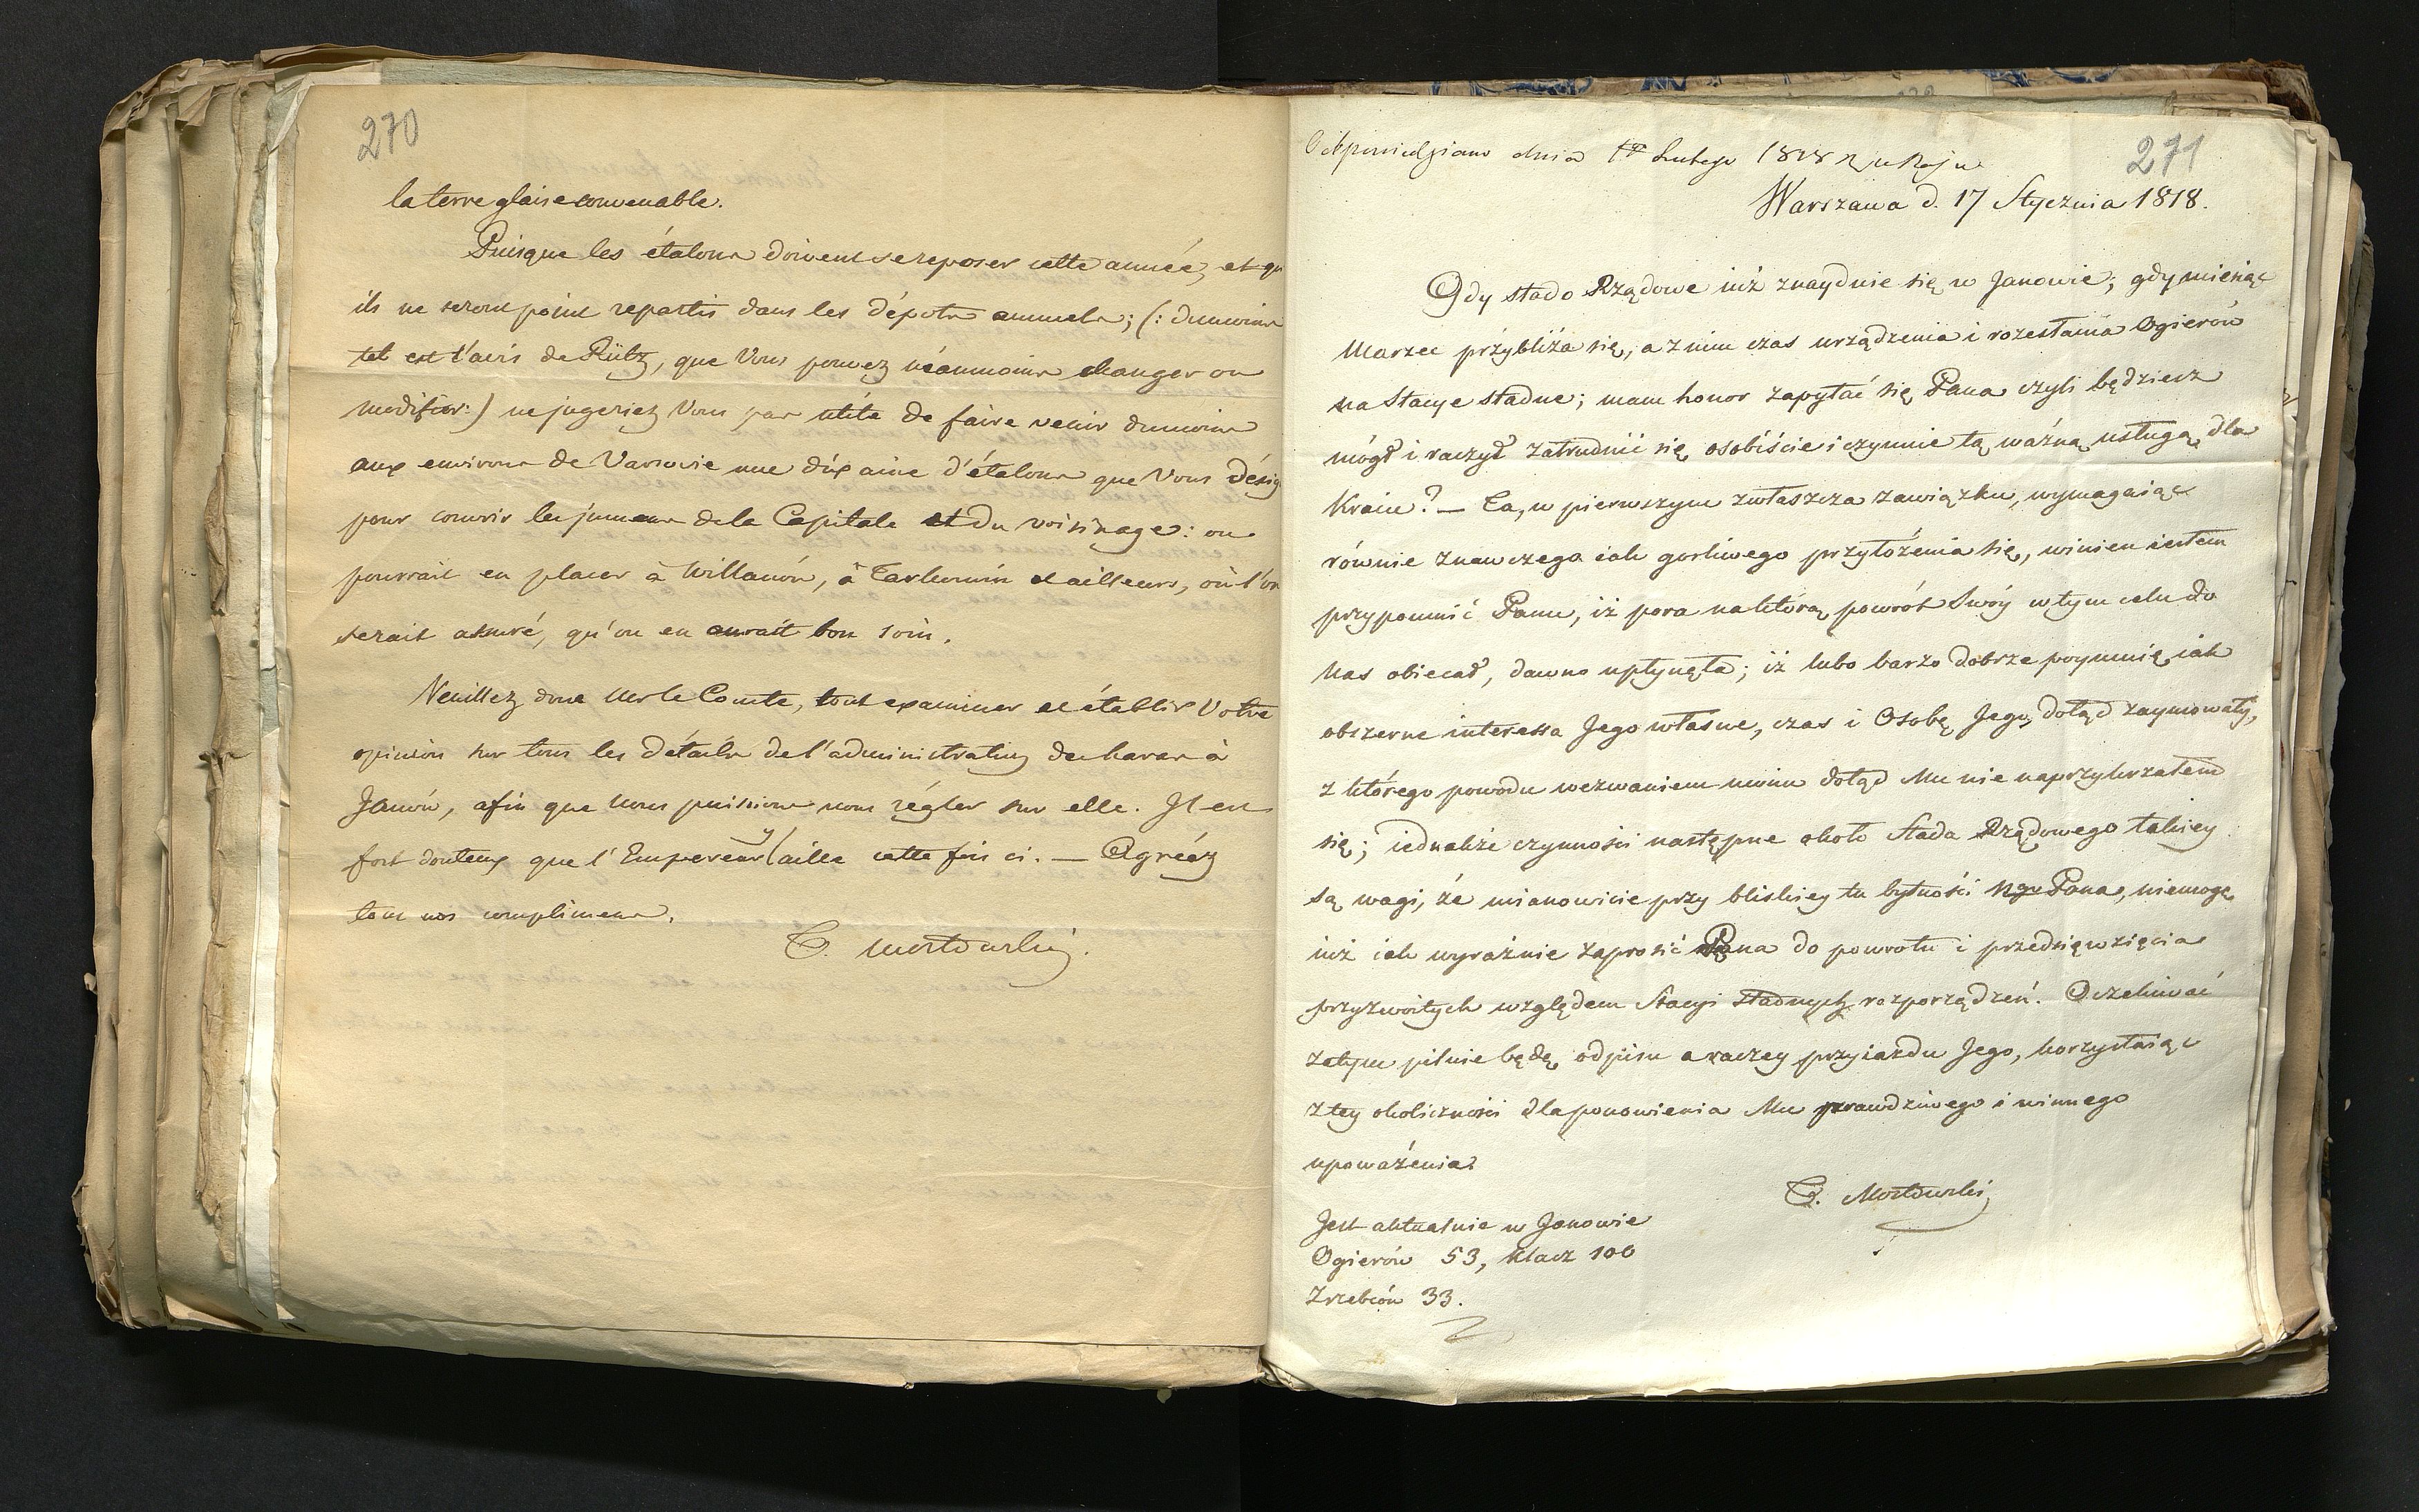 270
la terre glaise convenable.
Puisque les étalons doivent se reposer cette année, et qu
ils ne seront point repartis dans les dépots annuels; (: dumoins
tel est l'avis de Rütz, que Vous pouvez néanmoins changer ou
modifier :) ne jugeriez Vous pas utile de faire venir dumoins
aux environs de Varsovie une dixaine d'étalons que Vous désig
pour couvrir les jumens de la Capitale et du voisinage: on
pourrait en placer à Willanów, à Tarchomin et ailleurs, où l'on
serait assuré, qu'on en aurait bon soin.
Veuillez donc Mr le Comte, tout examiner et établir Votre
opinion sur tous les détails de l'administration des haras à
Janów, afin que nous puissions nous régler sur elle. Il est
fort douteux que l'Empereur y aille cette fois ci. — Agréez
tous nos complimens.
T. Mostowski.
Odpowiedziano dnia 1go Lutego 1818 z
271
Warszawa d. 17 Stycznia 1818.
Gdy stado Rządowe iuż znayduie się w Janowie; gdy miesiąc
Marzec przybliża się, a z nim czas urządzenia i rozesłania Ogierów
na Stacye stadne; mam honor zapytać się Pana czyli będziesz
mógł i raczył zatrudnić się osobiście i czynnie tą ważną usługą dla
Kraiu? — Ta, w pierwszym zwłaszcza zawiązku, wymagaiąc
równie znawczego iak gorliwego przyłożenia się, winien iestem
przypomnić Panu, iż pora na którą powrót Swóy w tym celu do
nas obiecał, dawno upłynęła; iż lubo barzo dobrze poymuię iak
obszerne interessa Jego własne, czas i Osobę Jego, dotąd zaymowały,
z którego powodu wezwaniem moim dotąd Mu nie naprzykrzałem
się; iednakże czynności następne około Stada Rządowego takiey
są wagi, że mianowicie przy bliskiey tu bytności Ngo Pana, niemogę
iuż iak wyraźnie zaprosić Pana do powrotu i przedsięwzięcia
przyzwoitych względem Stacyi stadnych rozporządzeń. Oczekiwać
zatym pilnie będę odpisu a raczey przyiazdu Jego, korzystaiąc
z tey okoliczności dla ponowienia Mu prawdziwego i winnego
upoważenia.
T. Mostowski
Jest aktualnie w Janowie
Ogierów 53, Klacz 100
Zrzebców 33.